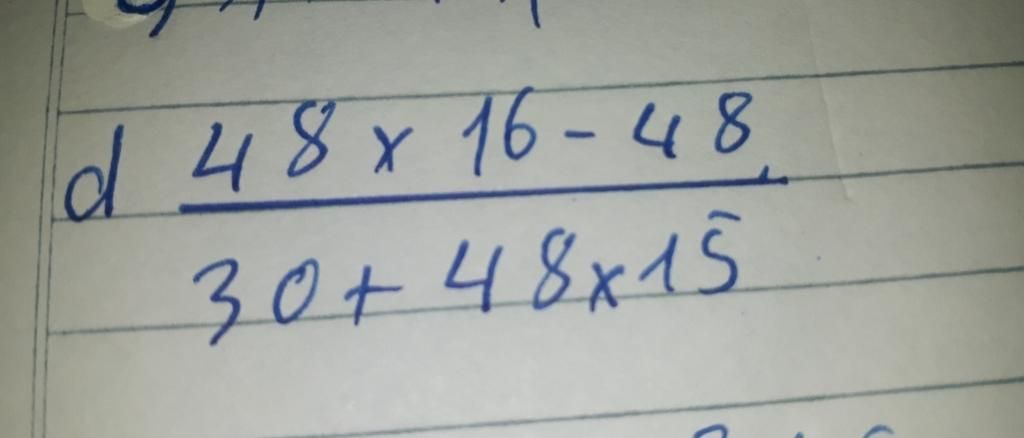 d 48 x 16 - 48
30 + 48 x 15